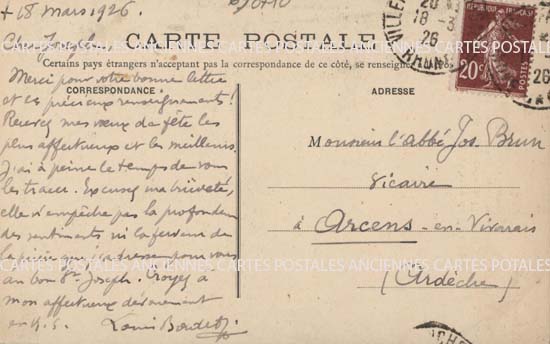 + 18 mars 1926.
Cher Joseph
CARTE POSTALE
Certains pays étrangers n'acceptent pas la correspondance de ce côté, se renseigner
CORRESPONDANCE
ADRESSE
Merci pour votre bonne lettre
et ces précieux renseignements!
Recevez mes vœux de fête les
plus affectueux et les meilleurs.
J'ai à peine le temps de vous
les tracer. Excusez ma brièveté,
elle n'empêche pas la profondeur
des sentiments, ni la ferveur de
la prière que j'adresse pour vous
au bon St Joseph. Croyez à
mon affectueux dévouement
en N.S.
Monsieur l'abbé Jos. Brun
Vicaire
à Arcens-en-Vivarais
(Ardèche)
REPUBLIQUE FRANÇAISE
20c
POSTES
VILLE
18-3
26
RHONE
CARTES POSTALES ANCIENNES CARTES POSTALES ANCIENNES CARTES POTALES